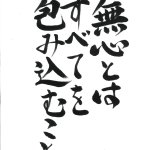 無心とは
すべてを
包み込むこと